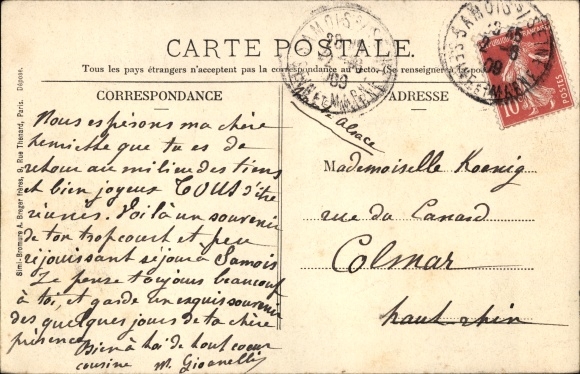 CARTE POSTALE
Tous les pays étrangers n'acceptent pas la correspondance au recto. (Se renseigner à la poste)
CORRESPONDANCE
Nous espérons ma chère
que tu es de
retour au milieu des tiens
et bien joyeux TOUS d'être
réunis. Voilà un souvenir
de ton trop court et peu
réjouissant séjour à Samois
Je pense toujours beaucoup
à toi, et garde un exquis souvenir
des quelques jours de ta chère
présence.
Bien à toi de tout coeur
cousine M. Gioanelli
ADRESSE
Alsace
Mademoiselle Koenig
rue du Canard
Colmar
haut-rhin
SAMOIS S/ SEINE
SEINE-ET-MARNE
09
SAMOIS S/ SEINE
SEINE-ET-MARNE
09
10
Simi-Bromure A. Breger Frères, 9, Rue Thénard, Paris. Déposé.